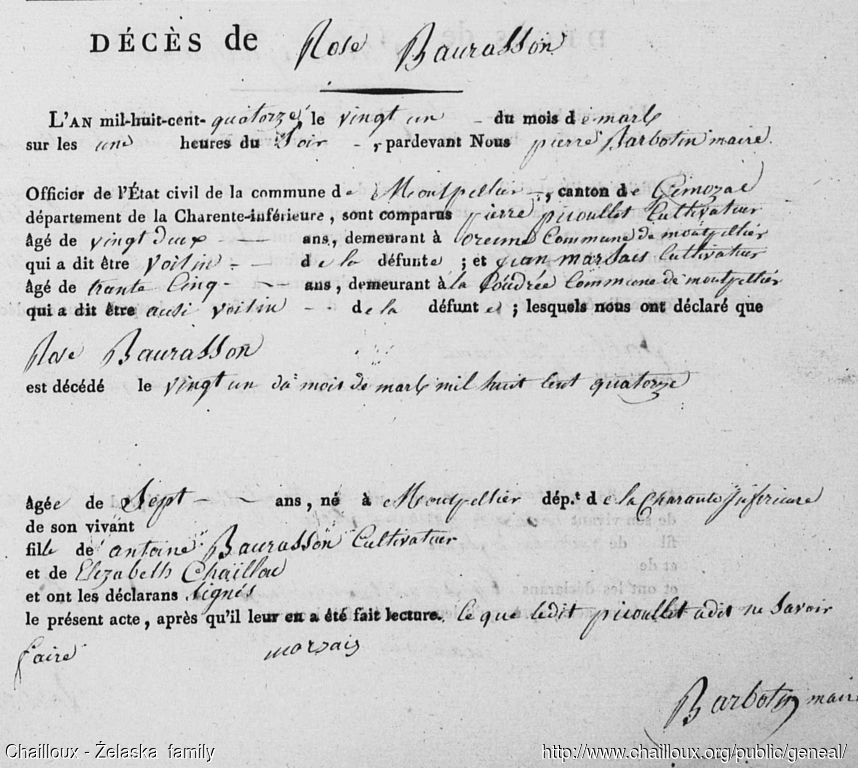 DÉCÈS de Rose Baurasson
L'AN mil-huit-cent-quatorze, le vingt un du mois de mars
sur les une heures du Soir, pardevant Nous pierre Barbotin maire
Officier de l'État civil de la commune de Montpellier, canton de Gemozac
département de la Charente-inférieure, sont comparus pierre picoullet Cultivateur
âgé de vingt deux ans, demeurant à Commune de montpellier
qui a dit être voisin de la défunte ; et jean marsais Cultivateur
Agé de trante Cinq ans, demeurant à la Coudrée Commune de montpellier
qui a dit être ausi voisin de la défunte ; lesquels nous ont déclaré que
Rose Baurasson
est décédé le vingt un du mois de mars mil huit cent quatorze
âgée de Sept ans, né à Montpellier dép.t de la Charante Inferieure
de son vivant
fille de antoine Baurasson Cultivateur
et de Elizabeth Chaillou
et ont les déclarans signés
le présent acte, après qu'il leur en a été fait lecture. ce que ledit picoullet a dit ne Savoir
faire marsais
Barbotin maire
Chailloux - Żelaska family http://www.chailloux.org/public/geneal/